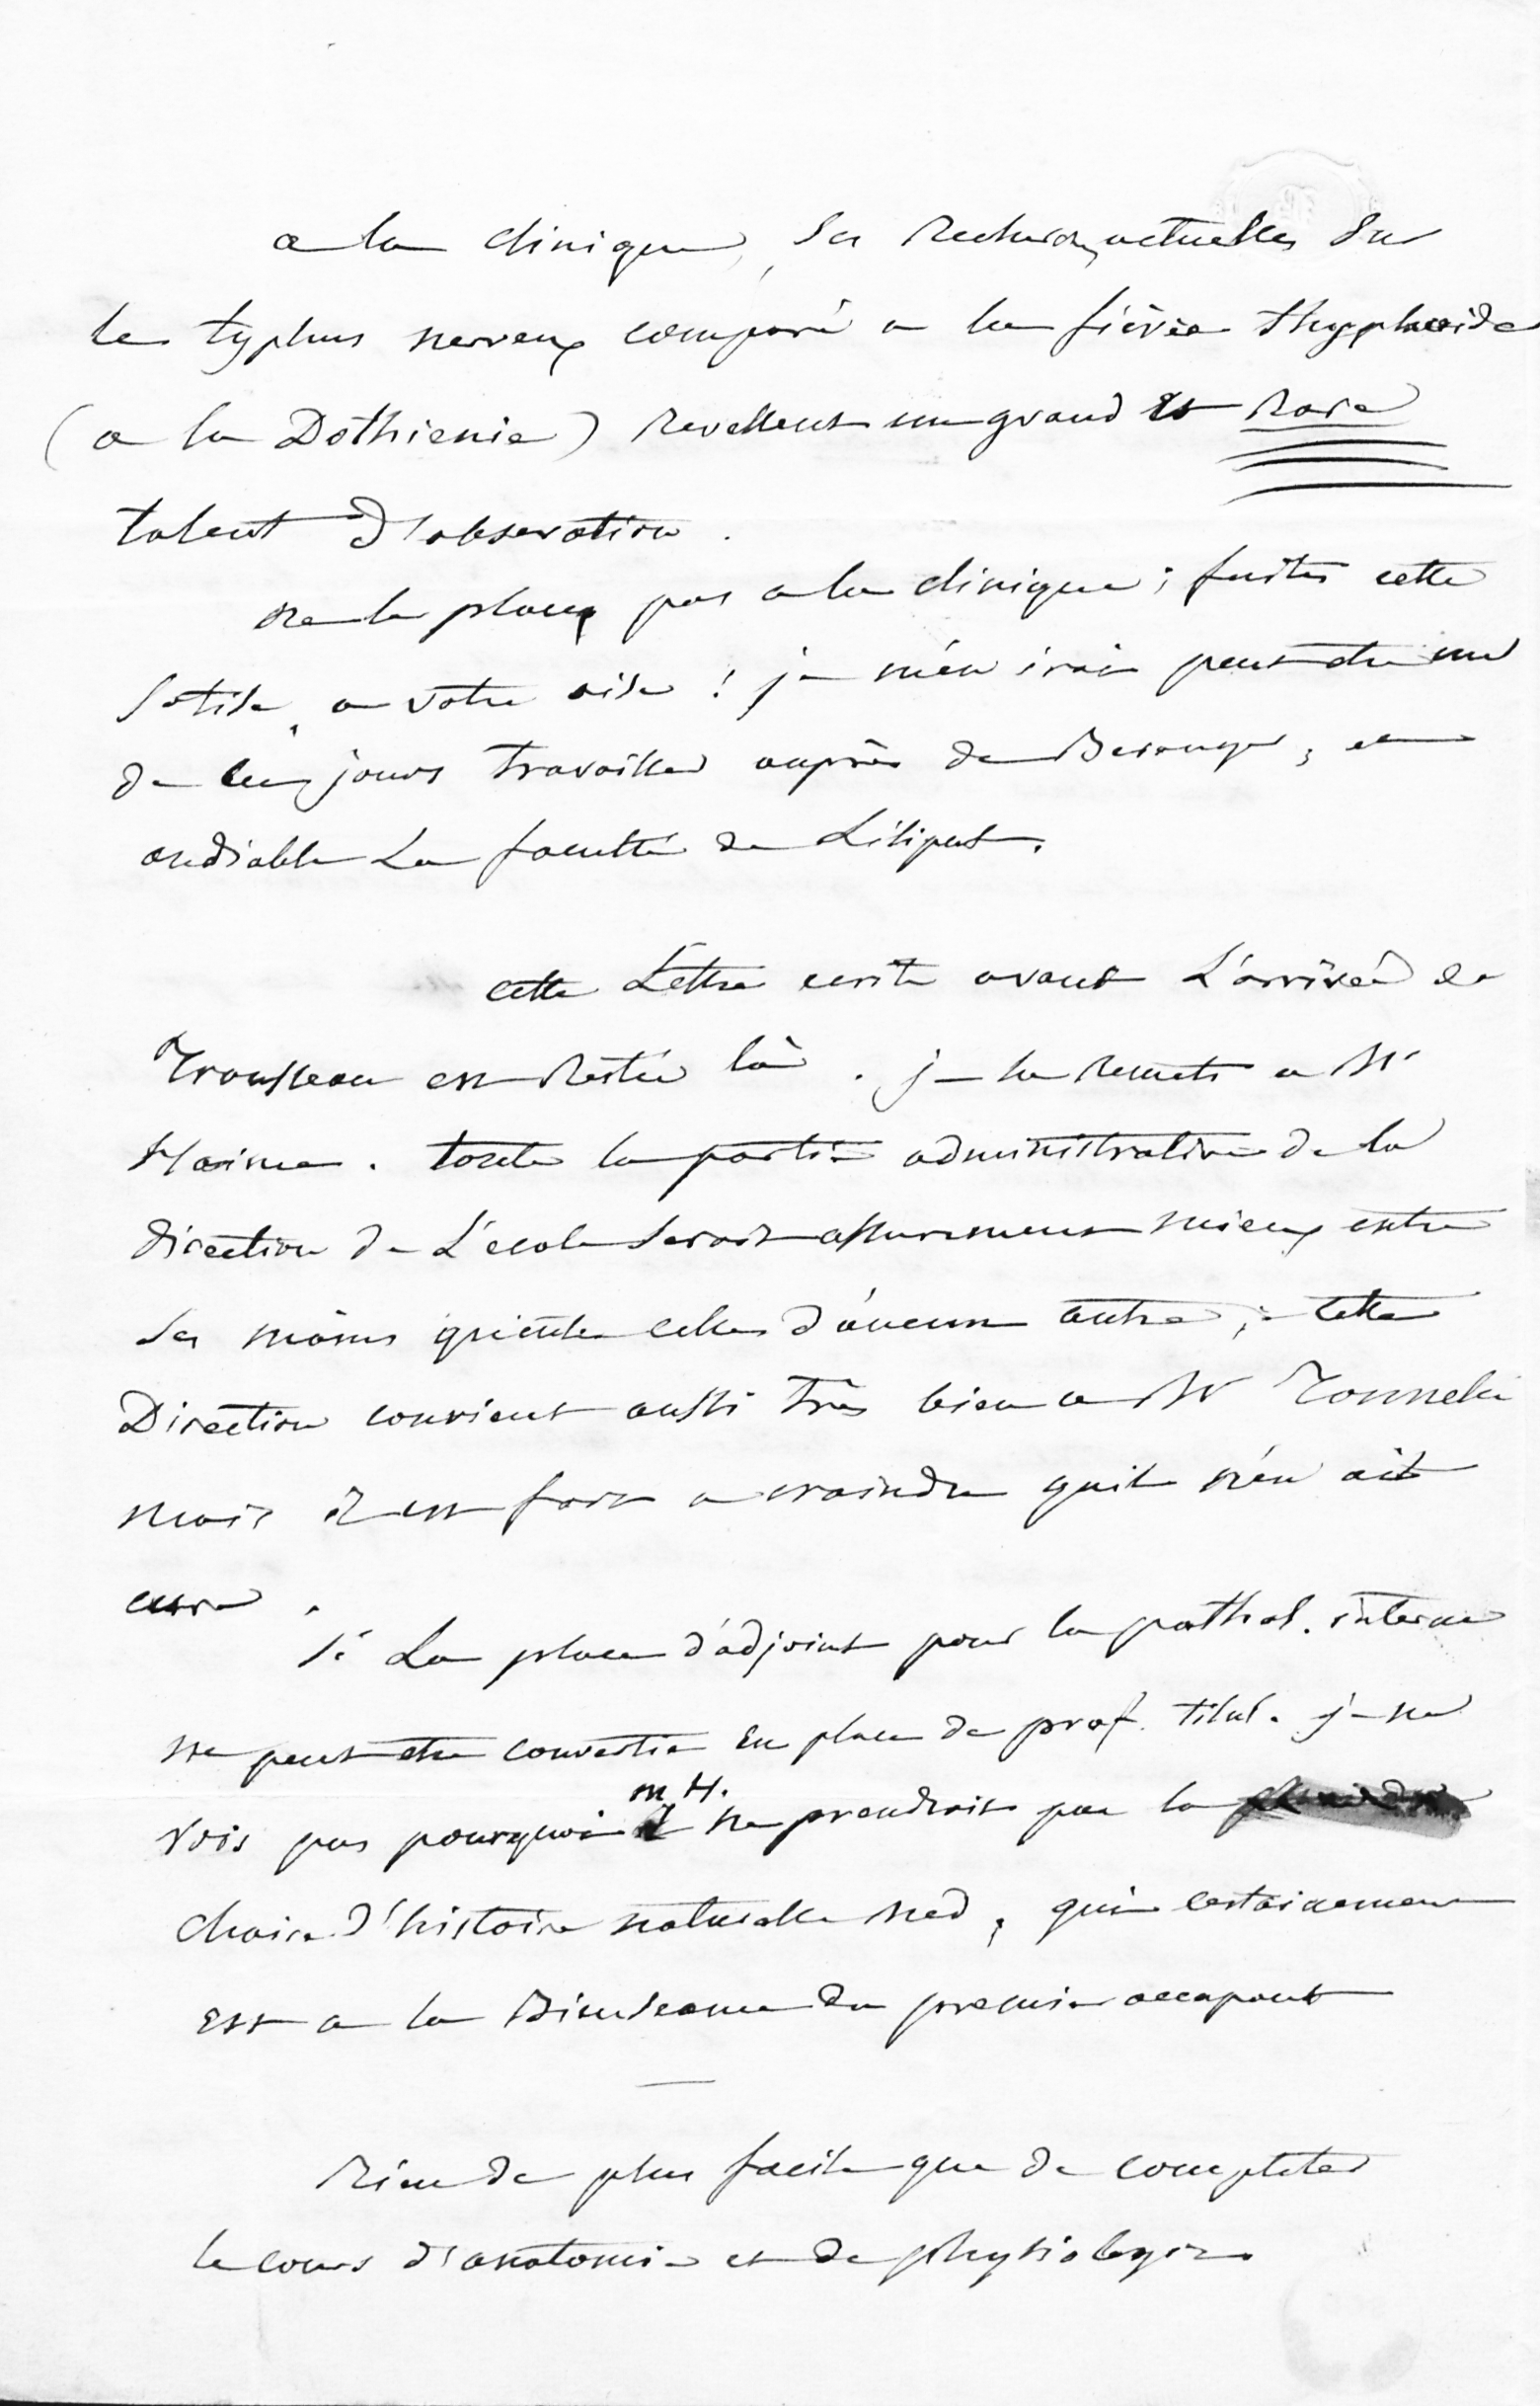 a la clinique, ses recherches actuelles sur
le typhus nerveux comparé a la fièvre thyphoide
(a la Dothienie) revellent un grand et rare
talent d'observation.
ne le placez pas a la clinique; faites cette
sotise, a votre aise! je m'en irai peut etre un
de ces jours travailler auprès de Beranger, et
au diable La faculté de Liliput.
cette Lettre ecrite avant L'arrivée de
Trousseau est restée là. je la remets a Mr
Haime. toute la partie administrative de la
direction de L'ecole serait assurement mieux entre
ses mains qu'entre celles d'aucun autre; cette
Direction convient aussi très bien a Mr Tonnelé
mais il est fort a craindre qu'il n'en ait
cure.
si La place d'adjoint pour la pathol. interne
ne peut etre convertie en place de prof. titul. je ne
vois pas pourquoi m H. ne prendrait pas la
chaire d'histoire naturelle med, qui certainement
est a la Bienseance du premier occupant
Rien de plus facile que de completer
le cours d'anatomie et de physiologie.